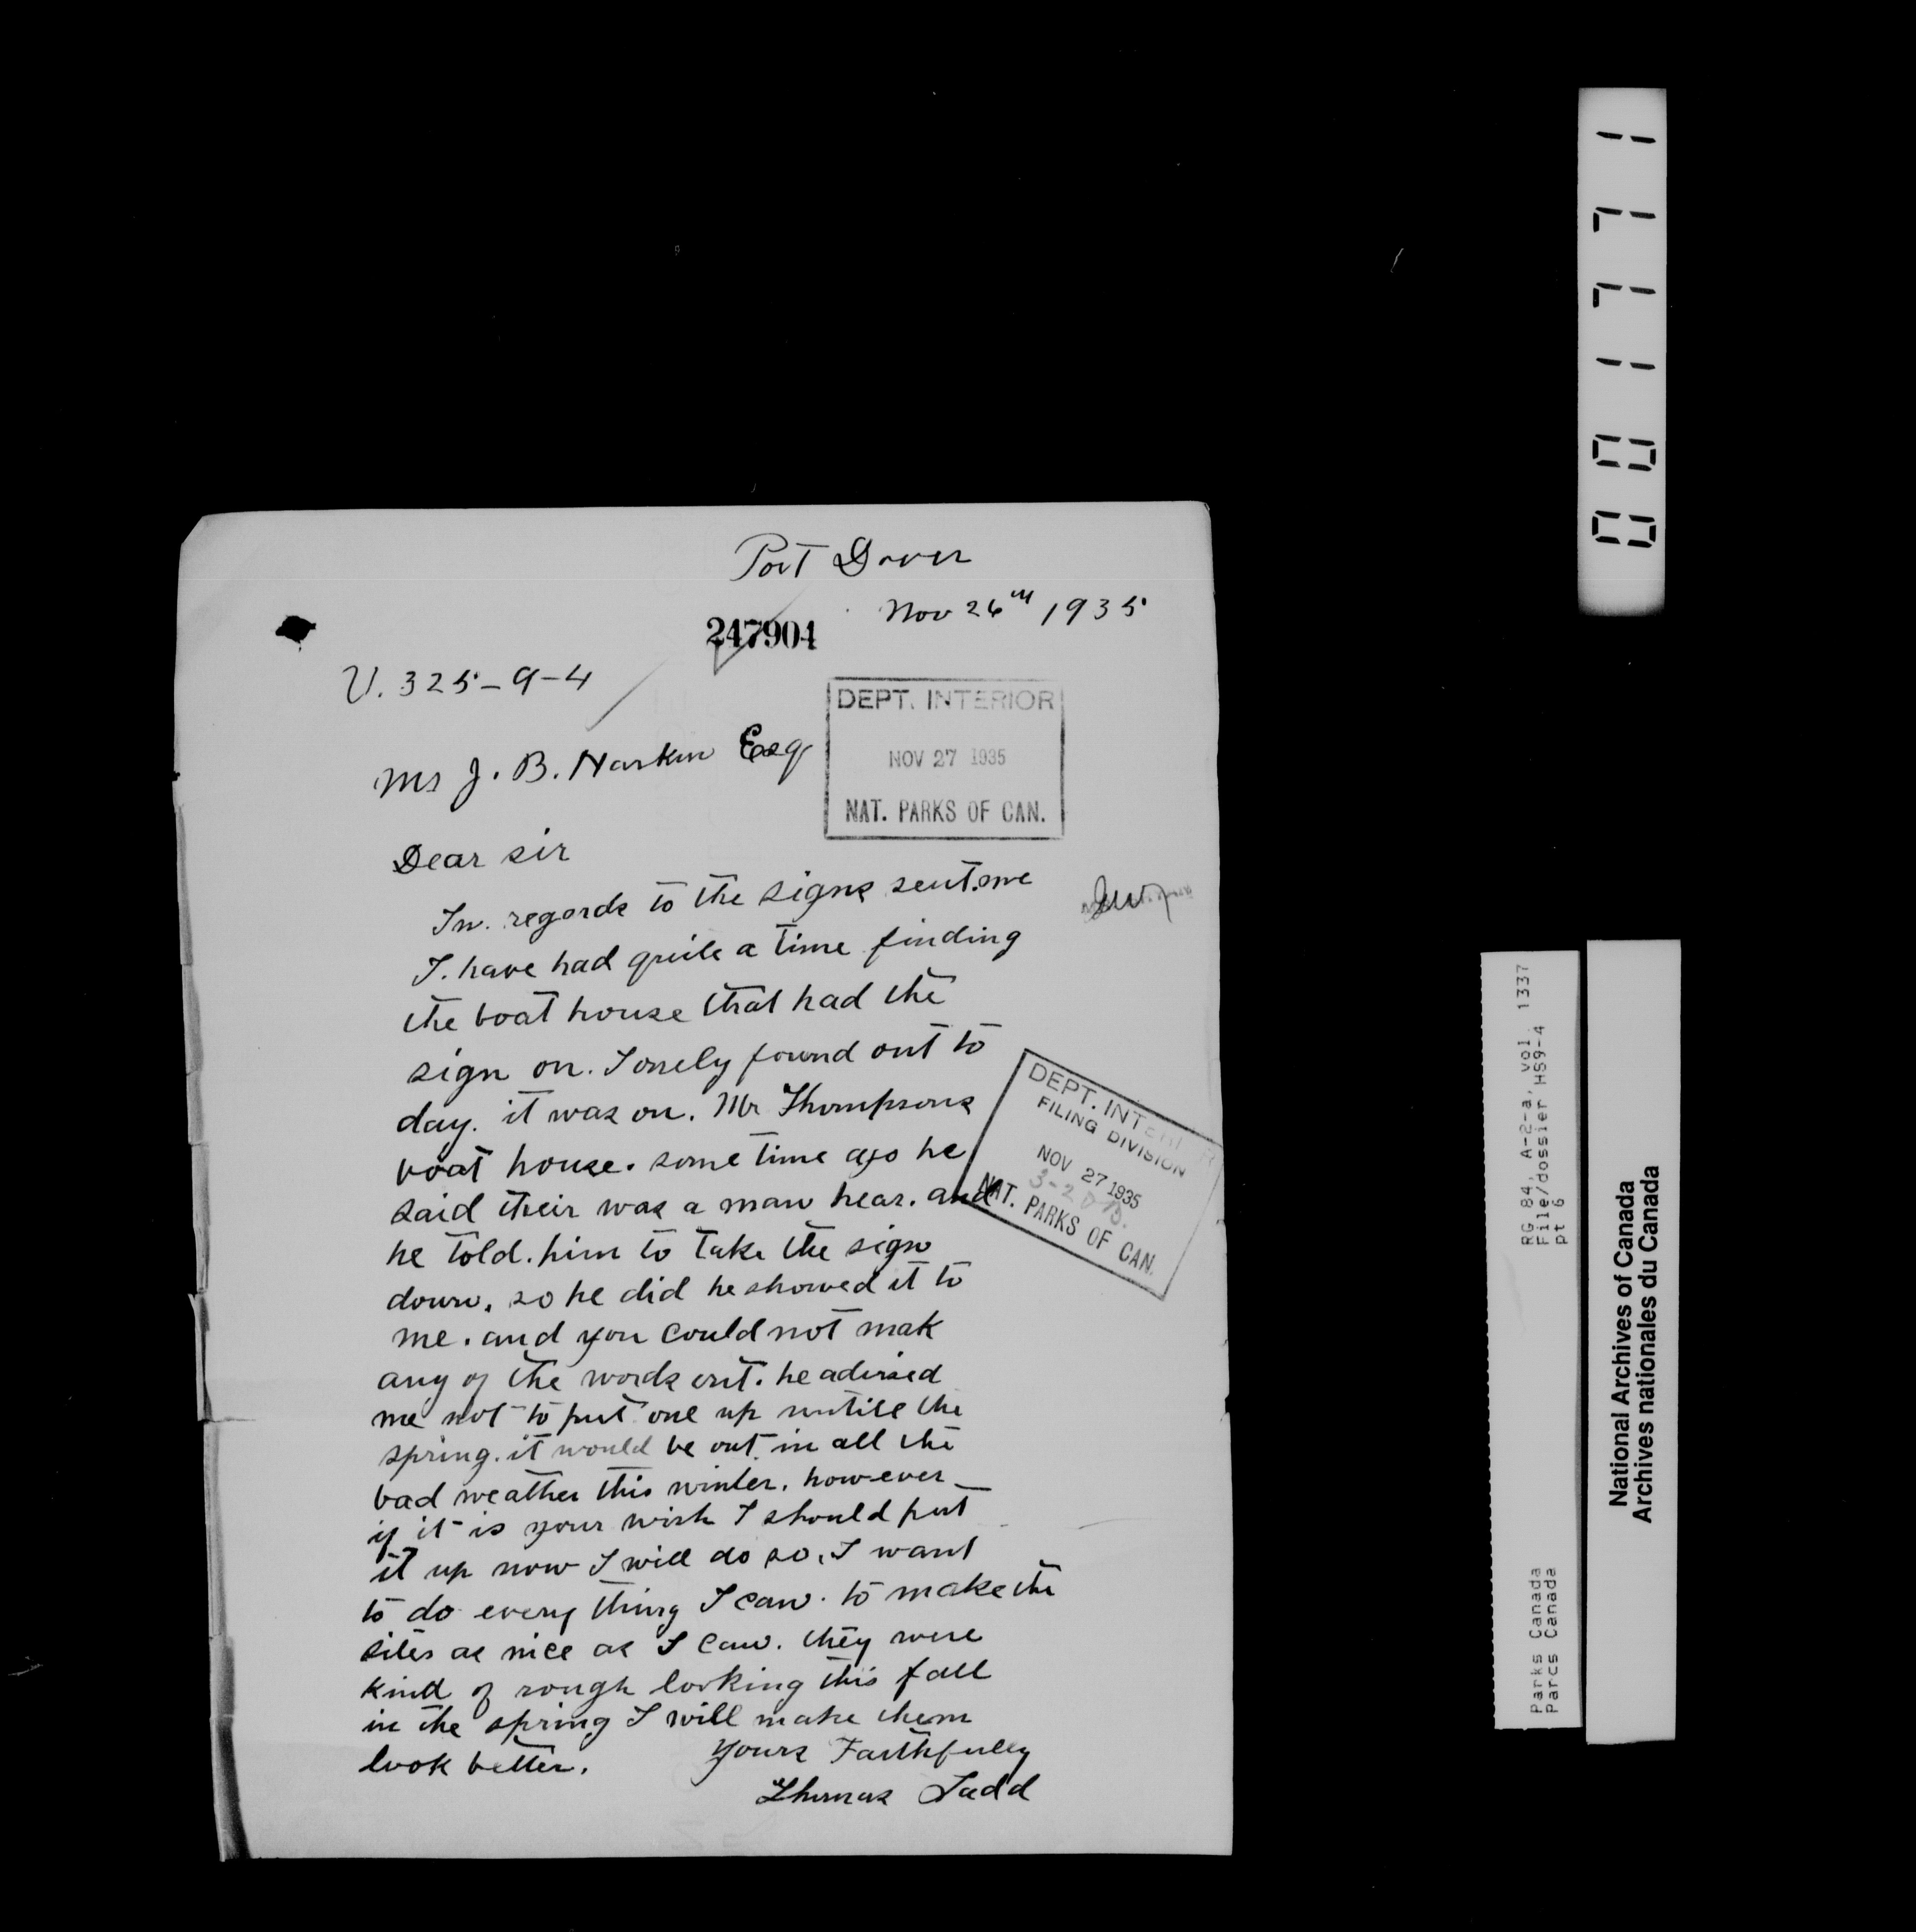 Port Dover
Nov 26th 1935
247904
U. 325-9-4
DEPT. INTERIOR
NOV 27 1935
NAT. PARKS OF CAN.
Mr J. B. Harkin Esq
Dear sir
In. regards to the signs sent.me
I. have had quite a time finding
the boat house that had the
sign on. I onely found out to
day. it was on. Mr Thompsons
boat house. some time ago he
said their was a man hear. and
he told. him to take the sign
down. so he did he showed it to
me. and you could not mak
any of the words out. he adviced
me not to put one up untill the
spring. it would be out in all the
bad weather this winter. how-ever
if it is your wish I should put
it up now I will do so. I want
to do every thing I can. to make the
sites as nice as I can. they were
kind of rough looking this fall
in the spring I will make them
look better.
Yours Faithfuley
Thomas Ladd
DEPT. INTERIOR
FILING DIVISION
NOV 27 1935
NAT. PARKS OF CAN.
001771
RG 84, A-2-a, vol. 1337
File/dossier HS9-4
pt 6
Parks Canada
Parcs Canada
National Archives of Canada
Archives nationales du Canada